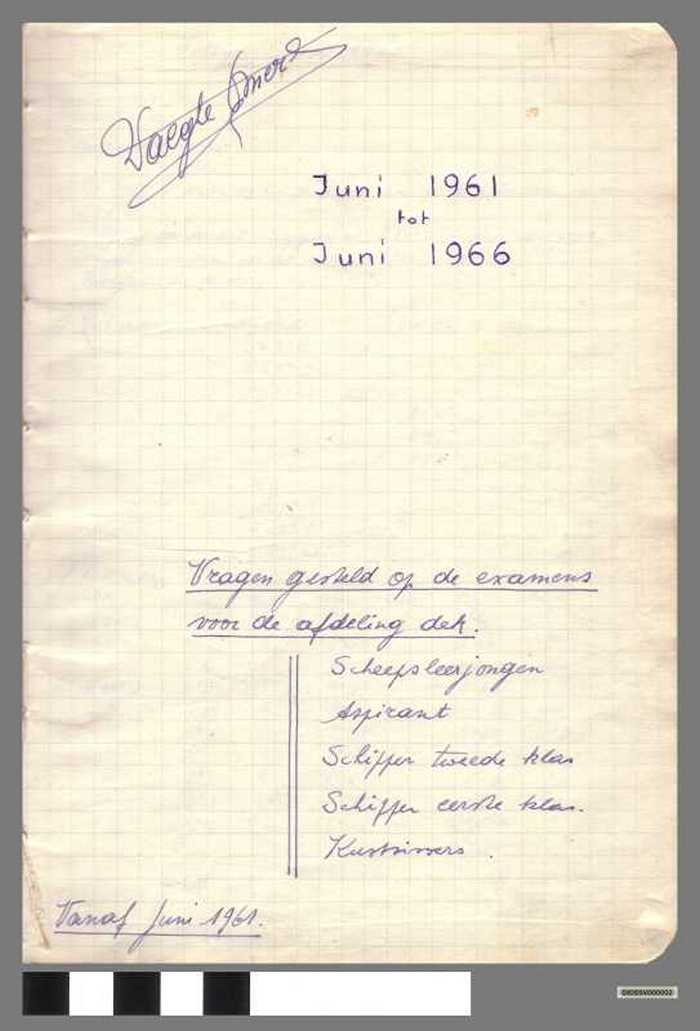 Juni 1961
tot
Juni 1966
Vragen gesteld op de examens
voor de afdeling dek.
Scheepsleerjongen
Aspirant
Schipper tweede klas
Schipper eerste klas.
Kustvissers.
Vanaf Juni 1961.